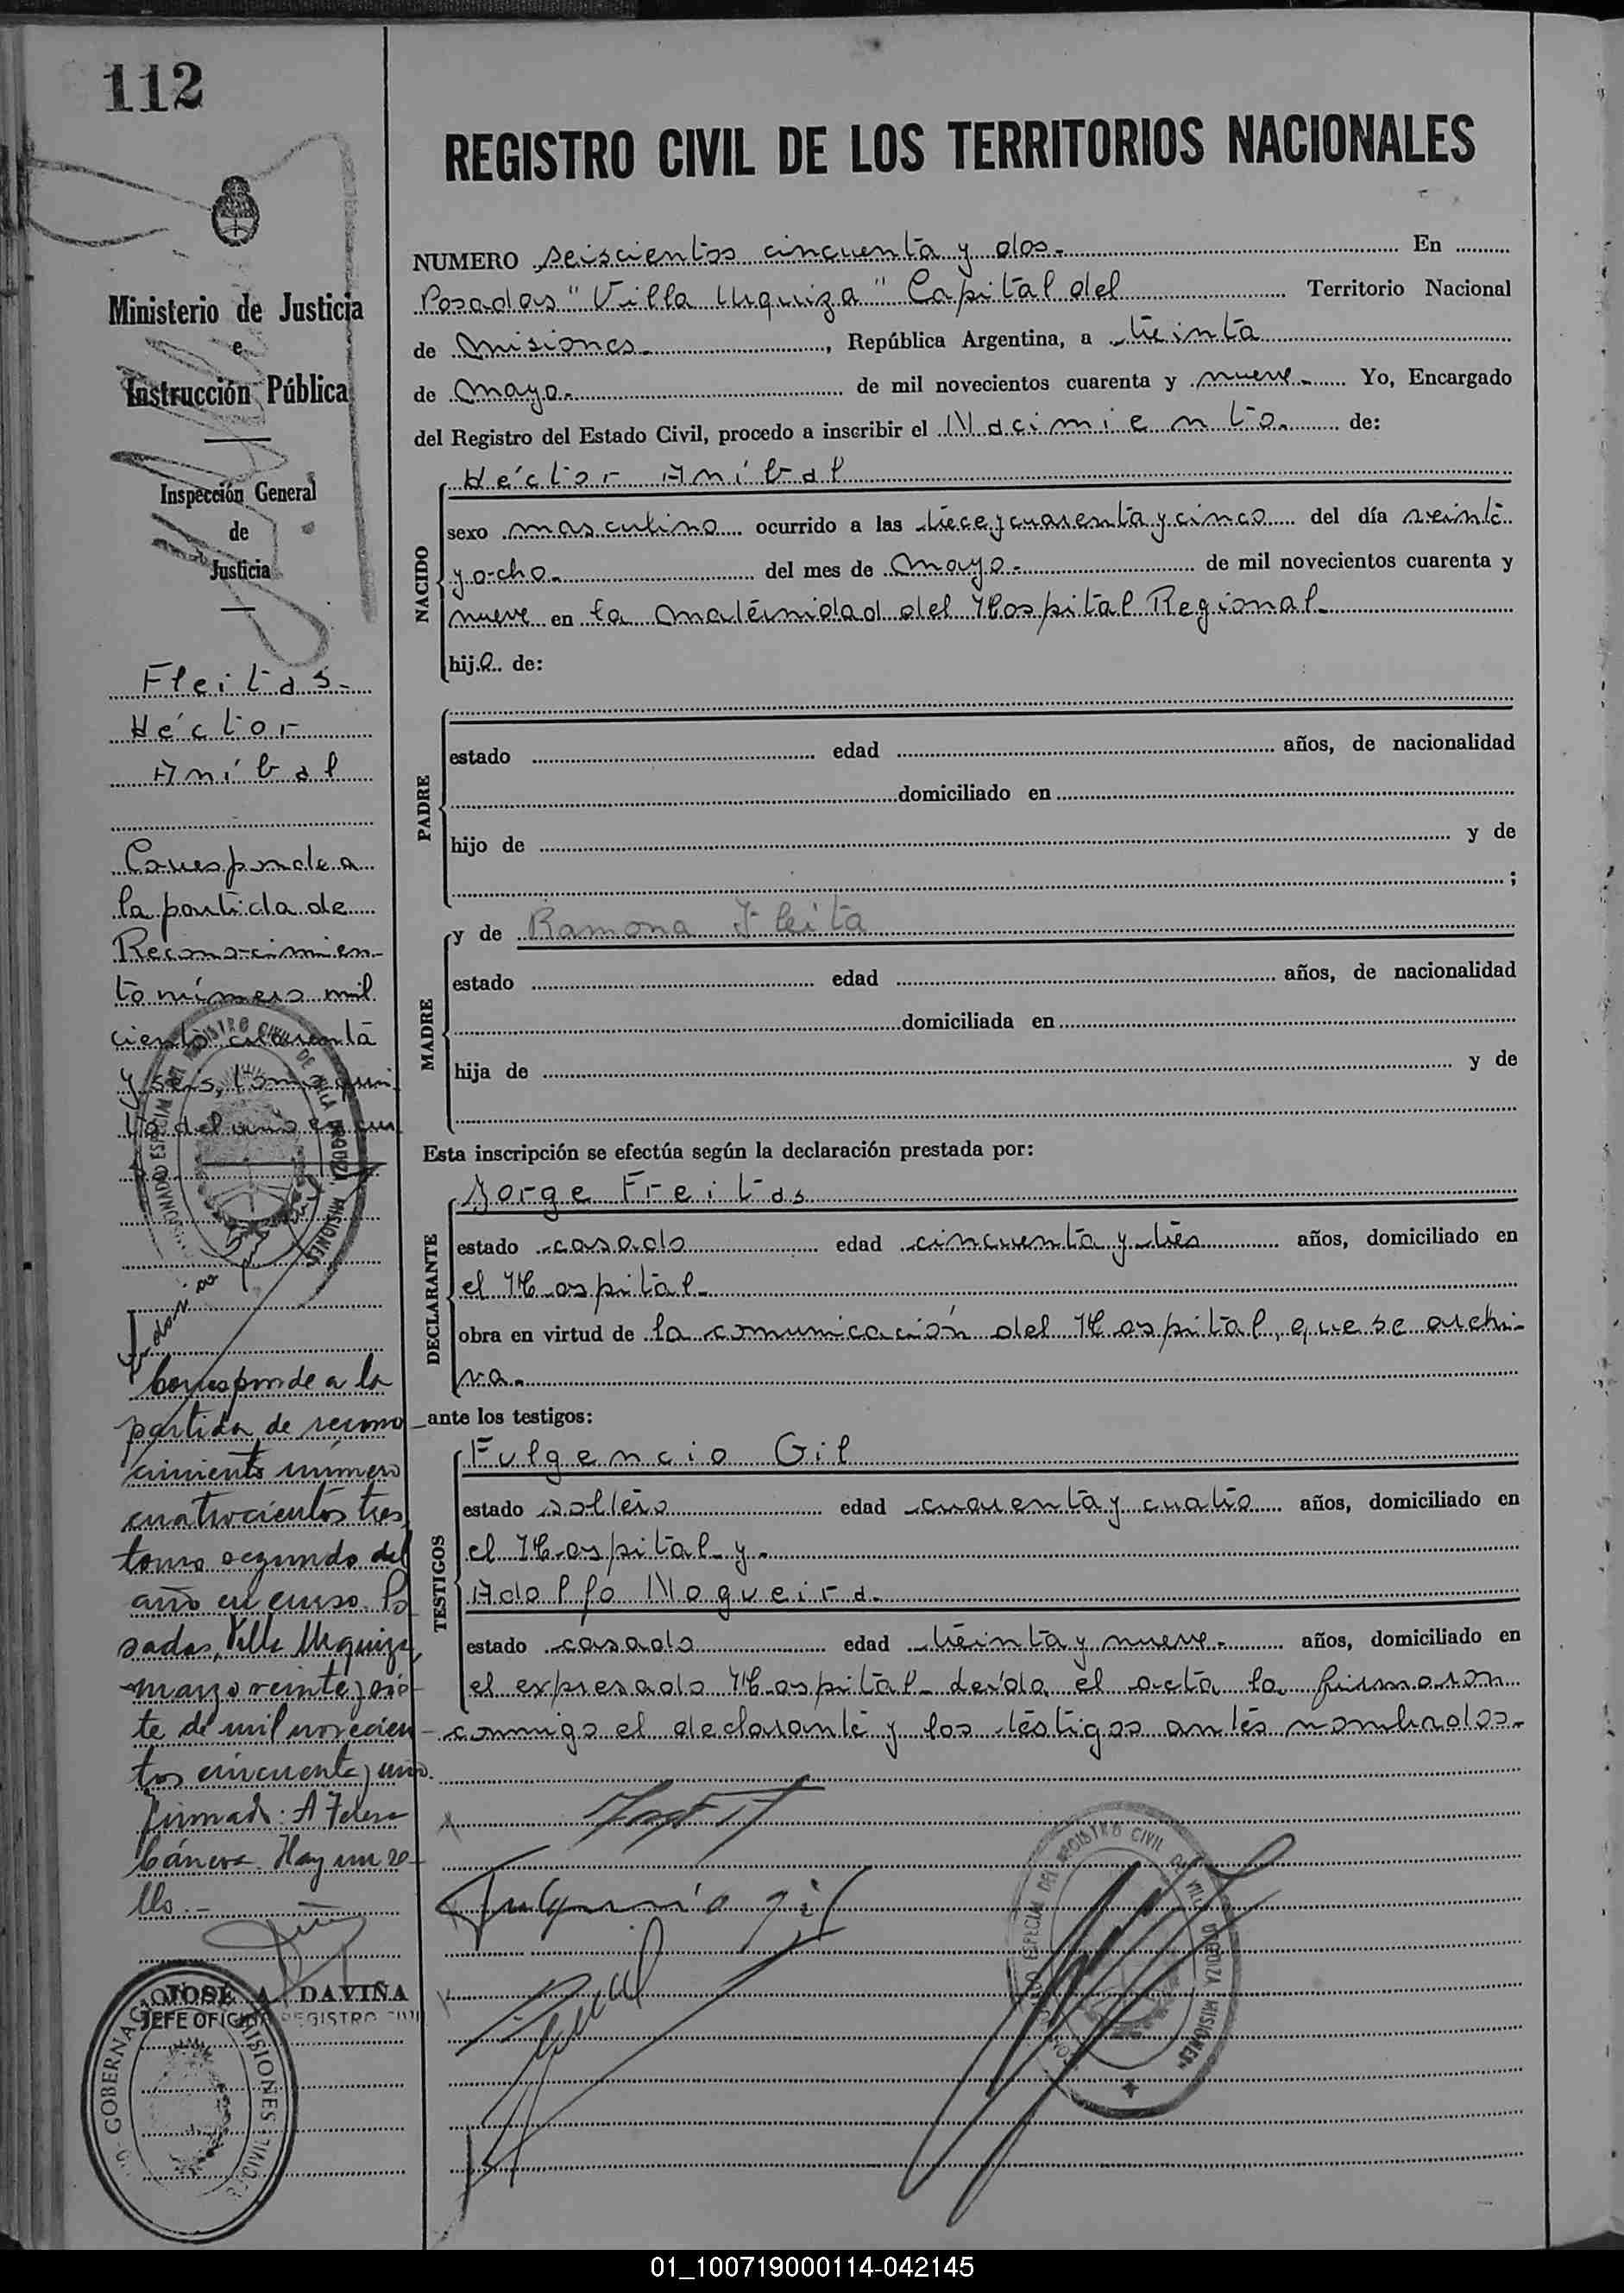 112
REGISTRO CIVIL DE LOS TERRITORIOS NACIONALES
Ministerio de Justicia
e
Instrucción Pública
Inspección General
de
Justicia
Fleitas.
Héctor
Aníbal
Corresponde a
la partida de
Reconocimien-
to número mil
ciento cuarenta
y seis, tomo quin
to del año en cur
so
Corresponde a la
partida de recono
cimiento número
cuatrocientos tres
tomo segundo del
año en curso. Po
sadas, Villa Urquiza,
marzo veinte y sie
te de mil novecien
tos cincuenta y uno.
firmado: A
Cánova. Hay un se
llo.-
JOSÉ A. DAVIÑA
JEFE OFICINA REGISTRO CIVIL
GOBERNACIÓN MISIONES
NUMERO seiscientos cincuenta y dos.- En
Posadas "Villa Urquiza" Capital del Territorio Nacional
de Misiones.-, República Argentina, a treinta
de Mayo.- de mil novecientos cuarenta y nueve.- Yo, Encargado
del Registro del Estado Civil, procedo a inscribir el Nacimiento. de:
NACIDO
Héctor Aníbal
sexo masculino ocurrido a las trece y cuarenta y cinco del día veinte
y ocho.- del mes de Mayo.- de mil novecientos cuarenta y
nueve en la Maternidad del Hospital Regional.-
hijo de:
PADRE
estado edad años, de nacionalidad
domiciliado en
hijo de y de
;
MADRE
y de Ramona Fleita
estado edad años, de nacionalidad
domiciliada en
hija de y de
Esta inscripción se efectúa según la declaración prestada por:
DECLARANTE
Jorge Freitas
estado casado edad cincuenta y tres años, domiciliado en
el Hospital.-
obra en virtud de la comunicación del Hospital, que se archi-
va.-
ante los testigos:
TESTIGOS
Fulgencio Gil
estado soltero edad cuarenta y cuatro años, domiciliado en
el Hospital y.-
Adolfo Nogueira.-
estado casado edad treinta y nueve.- años, domiciliado en
el expresado Hospital- leída el acta la firmaron
conmigo el declarante y los testigos antes nombrados.-
Fulgencio Gil
REGISTRO CIVIL DE VILLA URQUIZA MISIONES
01_100719000114-042145